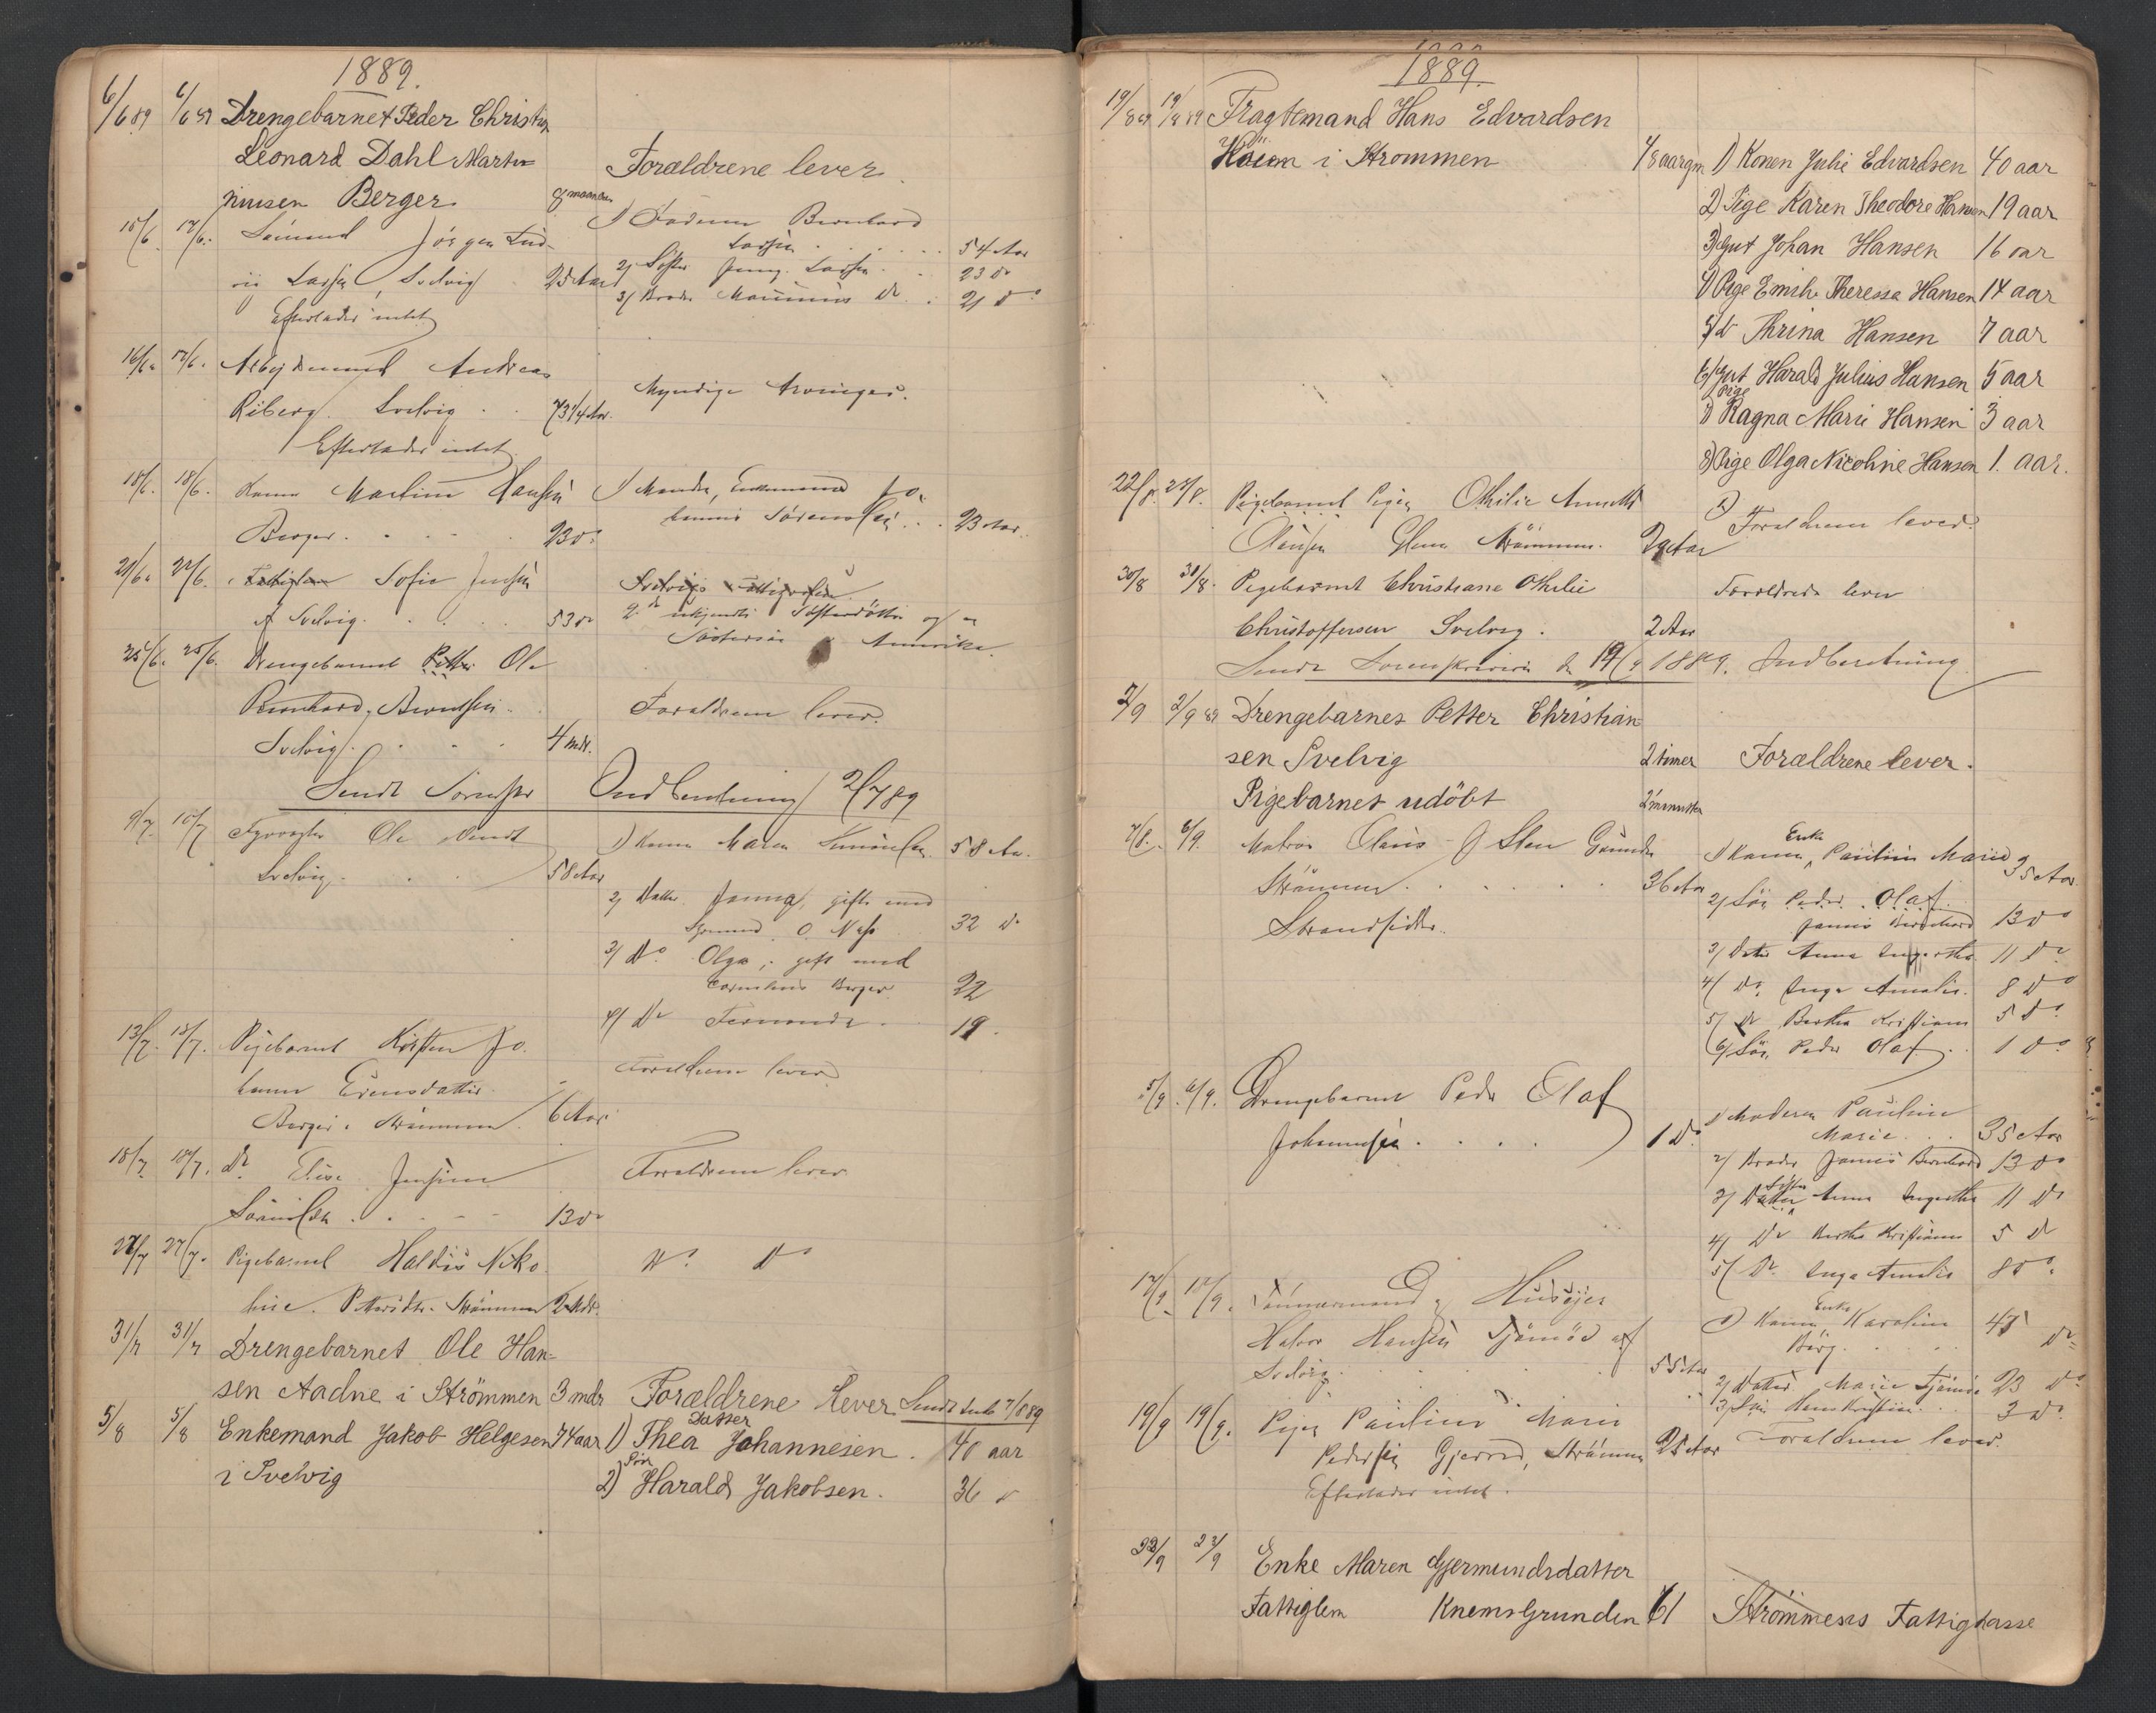 1889.
6/6 89 6/6 89 Drengebarnet Peder Christian
Leonard Dahl Martin
niusen Berger 8 maaneder
Forældrene lever
15/6. 17/6. Sömand Jörgen Lud-
vig Larsen, Svelvig 25 Aar
Efterlader intet
1) Faderen Bernhard
Larsen . . . . . 54 Aar
2) Söster Jenny Larsen . . 23 do
3) Broder Marinius do . 21 do
16/6. 17/6. Arbejdsmand Andreas
Riberg. Svelvig . . 73 1/4 Aar.
Efterlader intet
Myndige Arvinger.
18/6. 18/6. Kone Martine Hansen
Berger. . . . . 23 do
1) Manden, Jo-
hannes Sörensen . . 23 Aar.
21/6. 22/6. Fattiglem Sofie Jensen
af Svelvig. . . . 53 do
Svelvigs Fattigvæsen
2de ukjendte Söster og en
Amerika.
25/6. 25/6. Drengebarnet Petter Ole
Bernhard Berntsen.
Svelvig . . . 4 mdr.
Forældrene lever.
Sendt Sorenskr Indberetning 2/7 89
9/7. 10/7 Fyrvogter Ole
Svelvig. . . 58 Aar
1) Kone Maren Simonsen. 58 Aar.
2) Datter Janna, gift med
O. Næss 32 do
3) do Olga, gift med
Cornelius Berger 22
4) do Fernanda . 19.
13/7. 13/7. Pigebarnet Kirsten Jo-
hanne Evensdatter
Berger i Strömmen. 6 Aar
Forældrene lever
18/7. 18/7. do Elise Jensine
Sörensen . . . - - 13 do
Forældrene lever
27/7 27/7. Pigebarnet Haldis Niko-
line. Strömmen 2 Mdr.
do do
31/7 31/7 Drengebarnet Ole Han-
sen Aadne i Strömmen 3 mdr Forældrene Lever Sendt Indb 7/8 89
5/8 5/8 Enkemand Jakob Helgesen 74 aar 1) Datter Thea Johannesen . 40 aar
i Svelvig 2) Sön Harald Jakobsen. 36 "
1889.
19/8 89 19/8 89 Fragtemand Hans Edvardsen
i Strommen 48 aar gm 1) Konen Julie Edvardsen 40 aar
2) Pige Karen Theodore Hansen 19 aar
3) Gut Johan Hansen 16 aar
4) Pige Emilie Theressa Hansen 14 aar
5) d Thrina Hansen 7 aar
6) Gut Harald Julius Hansen 5 aar
7) Pige Ragna Marie Hansen 3 aar
8) Pige Olga Nicoline Hansen 1. aar.
22/8. 23/8. Pigebarnet Pigen Othilie Annette
Olausen Strömmen. Aar
Forældrene lever.
30/8 30/8. Pigebarnet Christiane Othilie
Christoffersen Svelvig. 2 Aar
Forældrene lever
Sendt Sorenskriveren den 1889. Indberetning
2/9 2/9 89 Drengebarnet Petter Christian-
sen Svelvig 2 timer Forældrene lever.
Pigebarnet udöbt 2 minutter
7/8. 6/9. Matros Olaus J Sten
Strömmen . . . . . 36 Aar
Strandsidder.
1) Kone Enke Pauline Marie 35 Aar.
2) Sön Peder Olaf
Jannis Bernhard 13 do
3) Datter Anna Ingertha 11 do
4) do. Inga Amalie. 8 do
5) do Bertha Kristiane 5 do
6) Sön Peder Olaf . 1 do
5/9. 6/9. Drengebarnet Peder Olaf
Johannesen . . . . 1 do.
1) Moderen Pauline
Marie . . . 35 Aar
2) Broder Jannis Bernhard 13 do
3) Datter Söster Anna Ingertha 11 do
4) do Bertha Kristiane 5 do
5) do. Inga Amalie 8 do.
17/9. 17/9. Tömmermand og Husejer
Halvor Hansen Tjömöe af
Svelvig . . . . . 55 Aar
1) Kone Enke Karoline 45 do
Berg. . . .
2) Datter Marie Tjömöe 23 do
3) Sön Hans Kristian . . 3 do.
19/9 19/9. Pigen Pauline Marie
Pedersen Gjerred, Strömmen 25 Aar
Efterlader intet.
Forældrene lever.
22/9 23/9 Enke Maren Gjermundsdatter
Fattiglem Knemsgrunden 61 Strömmens Fattigkasse